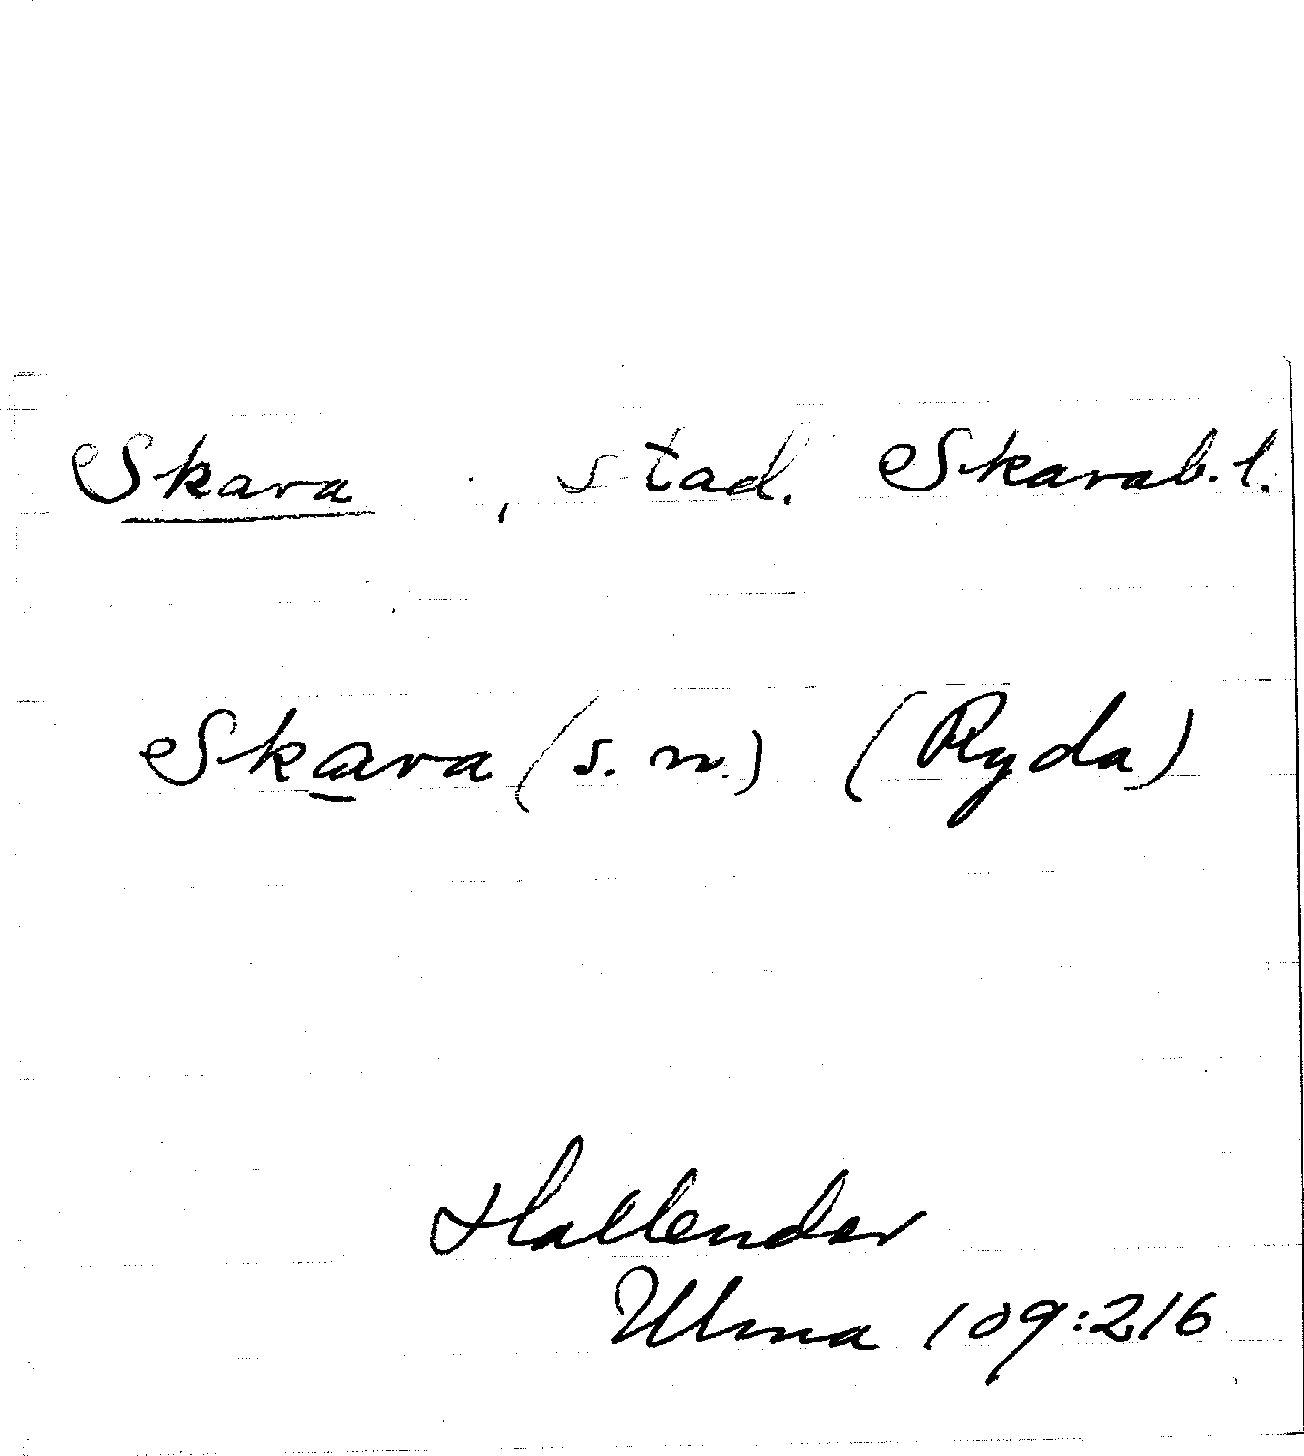 Skara , stad. Skarab. l.
Skara (s. n.) (Ryda)
Hallender
Ulma 109:216